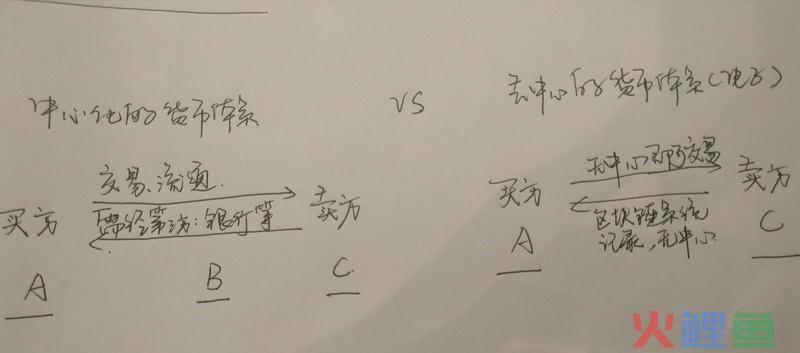 中心化的货币体系
VS
去中心的货币体系(电子)
交易、流通
买方
卖方
需经第三方:银行等
A
B
C
无中心即可交易
买方
卖方
区块链系统
记录,无中心
A
C
火鲤鱼